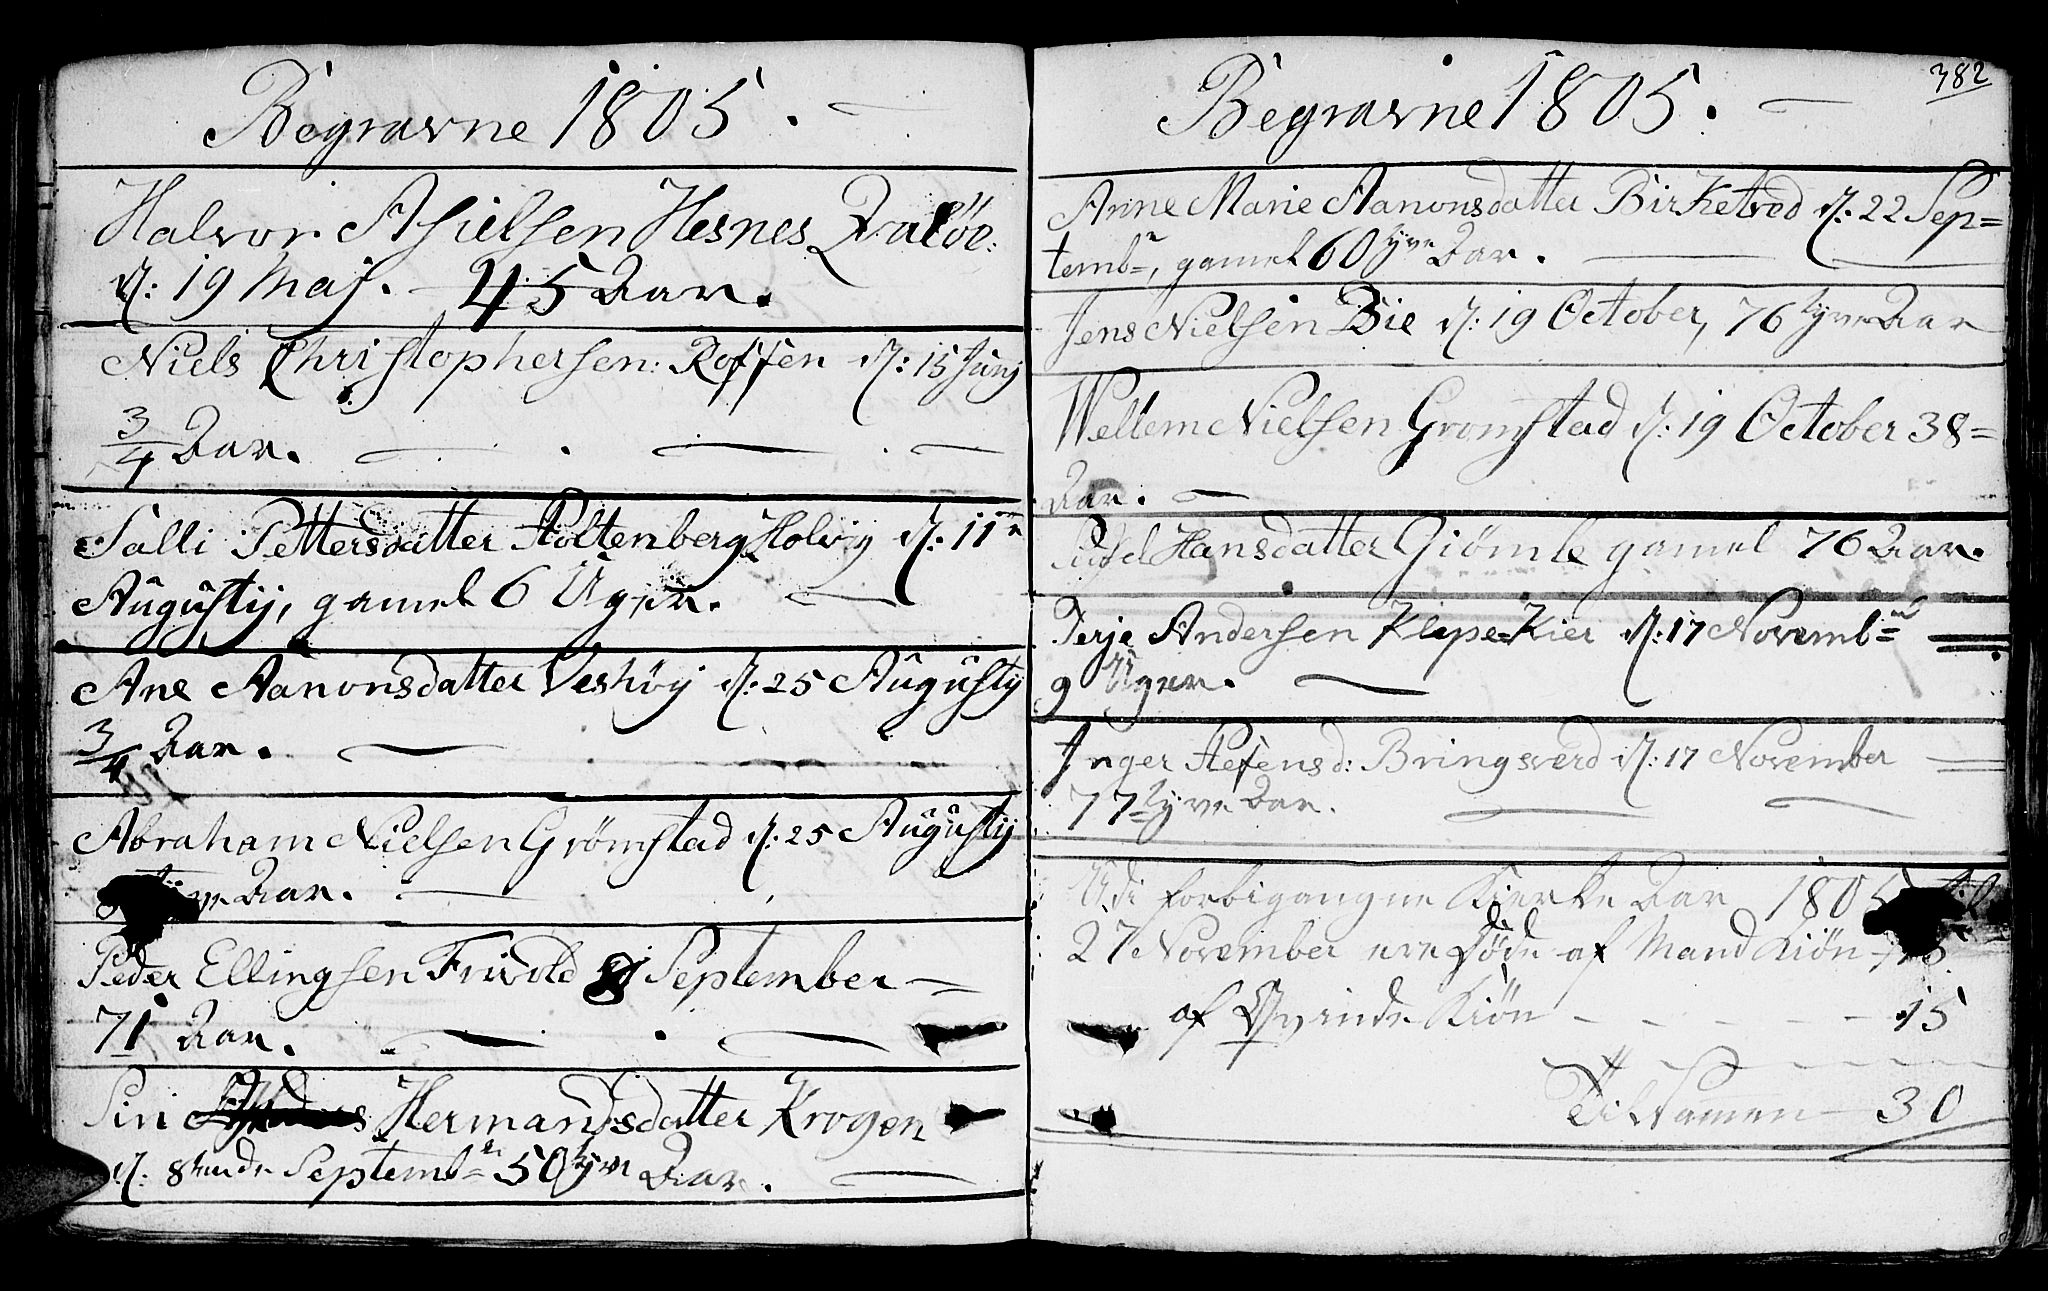 Begravne 1805.
Halvor Asielsen Hesnes Qvaløe:
d: 19 Maj. 45 Aar.
Niels Christophersen: Roffen d: 15 Junj
3/4 Aar.
Salli Pettersdatter Stoltenberg Holvig d: 11te
Augustij, gamel 6 Uger.
Ane Aanonsdatter Veshøy d: 25 Augustij
3/4 Aar.
Abraham Nielsen Grømstad d: 25 Augustij
Aar.
Peder Ellingsen Frivold September
71 Aar.
Siri Hermandsdatter Krogen
d: 8tende Septembr 50tyve Aar.
382
Begravne 1805.
Anne Marie Aanonsdatter Birketved d: 22 Sep=
tembr, gamel 60tyve Aar.
Jens Nielsen Bie d: 19 October, 76tyve Aar
Wellem Nielsen Gromstad d: 19 October 38=
Aar.
Hansdatter Giømle gamel 76 Aar.
Terje Andersen Klepe=Kier d: 17 Novemb
9 Uger.
Inger Stefensd: Bringsverd d: 17 November
77tyve Aar.
Udi forbigangne Kierke Aar 1805
27 November ere Døde af Mand Kiøn
af Qvinde Kiøn - - - - - 15
Til Samen - 30